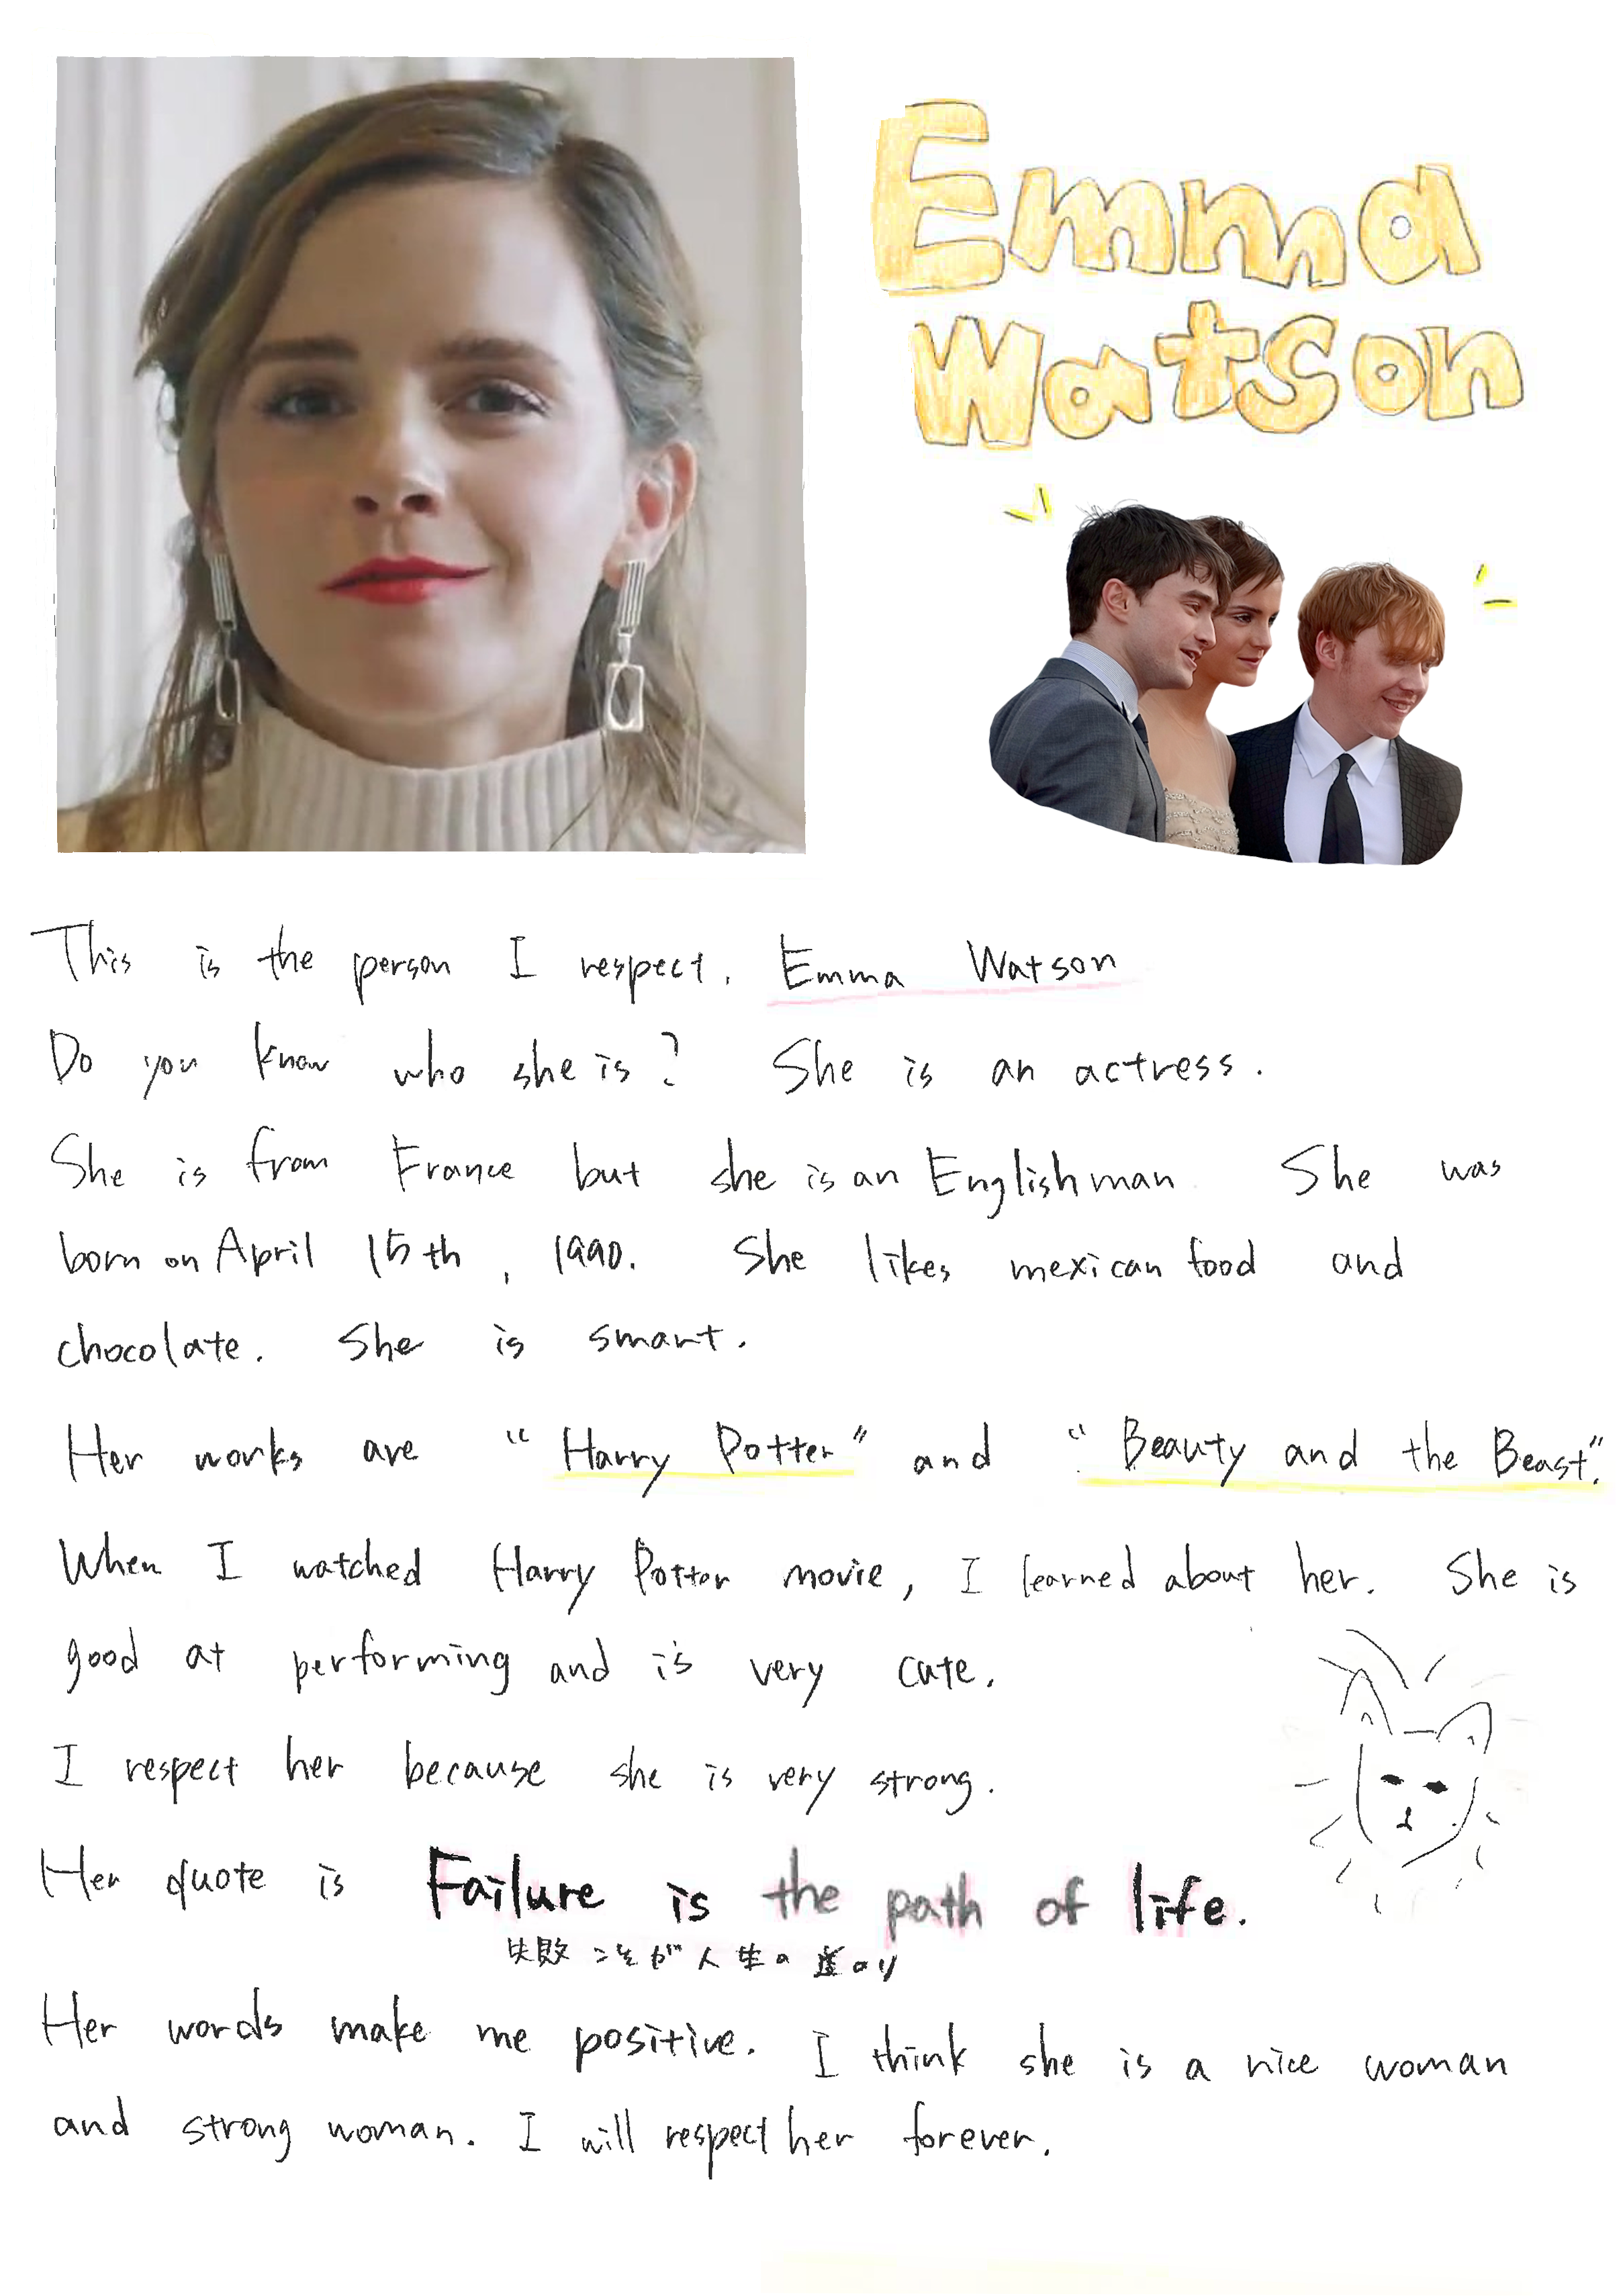 Emma
Watson
This is the person I respect. Emma Watson
Do you know who she is? She is an actress.
She is from France but she is an Englishman She was
born on April 15th, 1990. She likes mexican food and
chocolate. She is smart.
Her works are "Harry Potter" and "Beauty and the Beast".
When I watched Harry Potter movie, I learned about her. She is
good at performing and is very cute.
I respect her because she is very strong.
Her quote is Failure is the path of life.
失敗こそが人生の道のり
Her words make me positive. I think she is a nice woman
and strong woman. I will respect her forever.